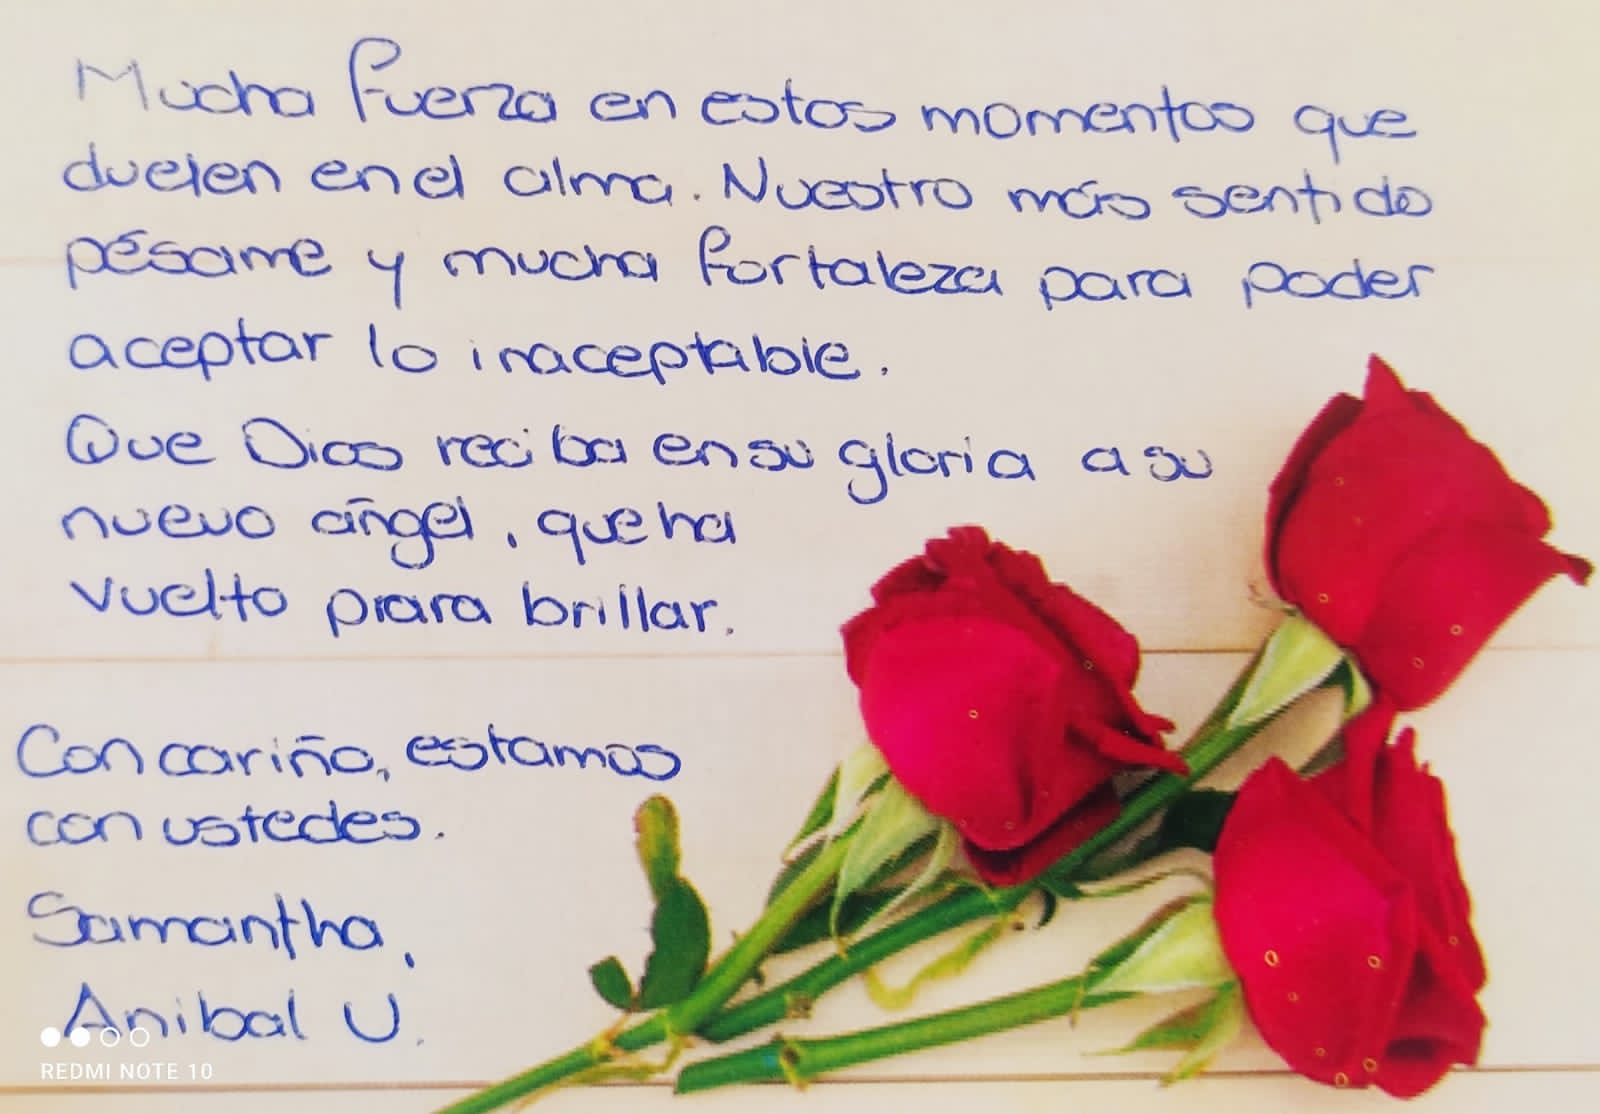 Mucha fuerza en estos momentos que
duelen en el alma. Nuestro más sentido
pésame y mucha fortaleza para poder
aceptar lo inaceptable.
Que Dios reciba en su gloria a su
nuevo añgel, que ha
vuelto prara brillar.
Con cariño, estamos
con ustedes.
Samantha,
Anibal U.
REDMI NOTE 10